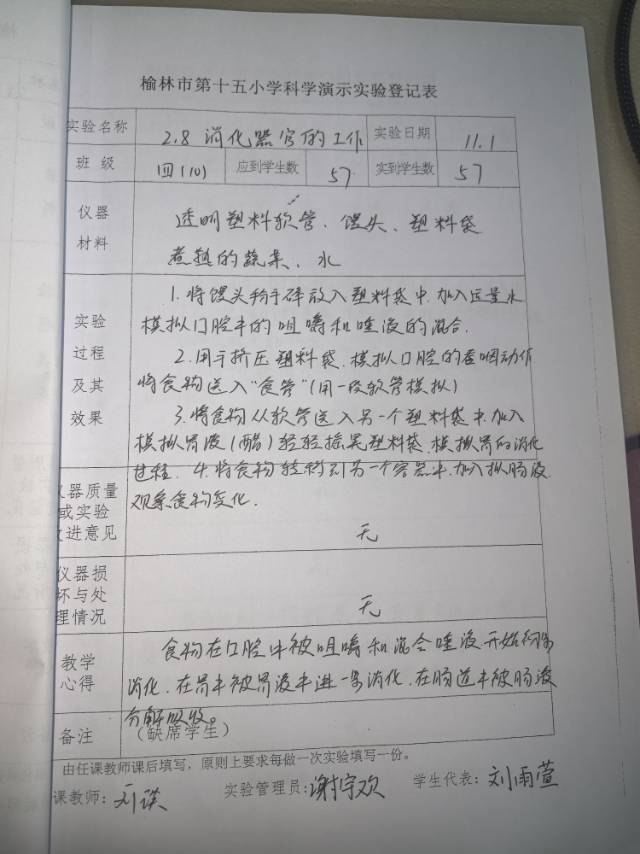 榆林市第十五小学科学演示实验登记表
实验名称 2.8 消化器官的工作 实验日期 11.1
班 级 四(10) 应到学生数 57 实到学生数 57
仪器 透明塑料软管、馒头、塑料袋
材料 煮熟的蔬菜、水
1.将馒头粉碎放入塑料袋中.加入适量水
实验 模拟口腔中的咀嚼和唾液的混合.
过程 2.用手挤压塑料袋.模拟口腔的吞咽动作
及其 将食物送入"食管"(用一段软管模拟)
效果 3.将食物从软管送入另一个塑料袋中.加入
模拟胃液(醋)轻轻揉晃塑料袋.模拟胃的消化
过程. 4.将食物转移到另一个容器中.加入拟肠液
仪器质量 观察食物变化.
或实验
改进意见 无
仪器损
坏与处
理情况 无
食物在口腔中被咀嚼和混合唾液开始初步
教学
心得 消化.在胃中被胃液中进一步消化.在肠道中被肠液
分解吸收。
备注 (缺席学生)
由任课教师课后填写,原则上要求每做一次实验填写一份。
课教师: 实验管理员:谢宇欢 学生代表:刘雨萱